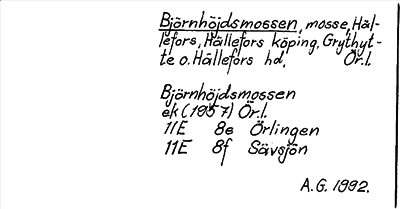 Björnhöjdsmossen, mosse, Häl-
lefors, Hällefors köping, Grythyt-
te o. Hällefors hd, Ör.l.
Björnhöjdsmossen
ek (1957) Ör.l.
11E 8e Örlingen
11E 8f Sävsjön
A.G. 1992.